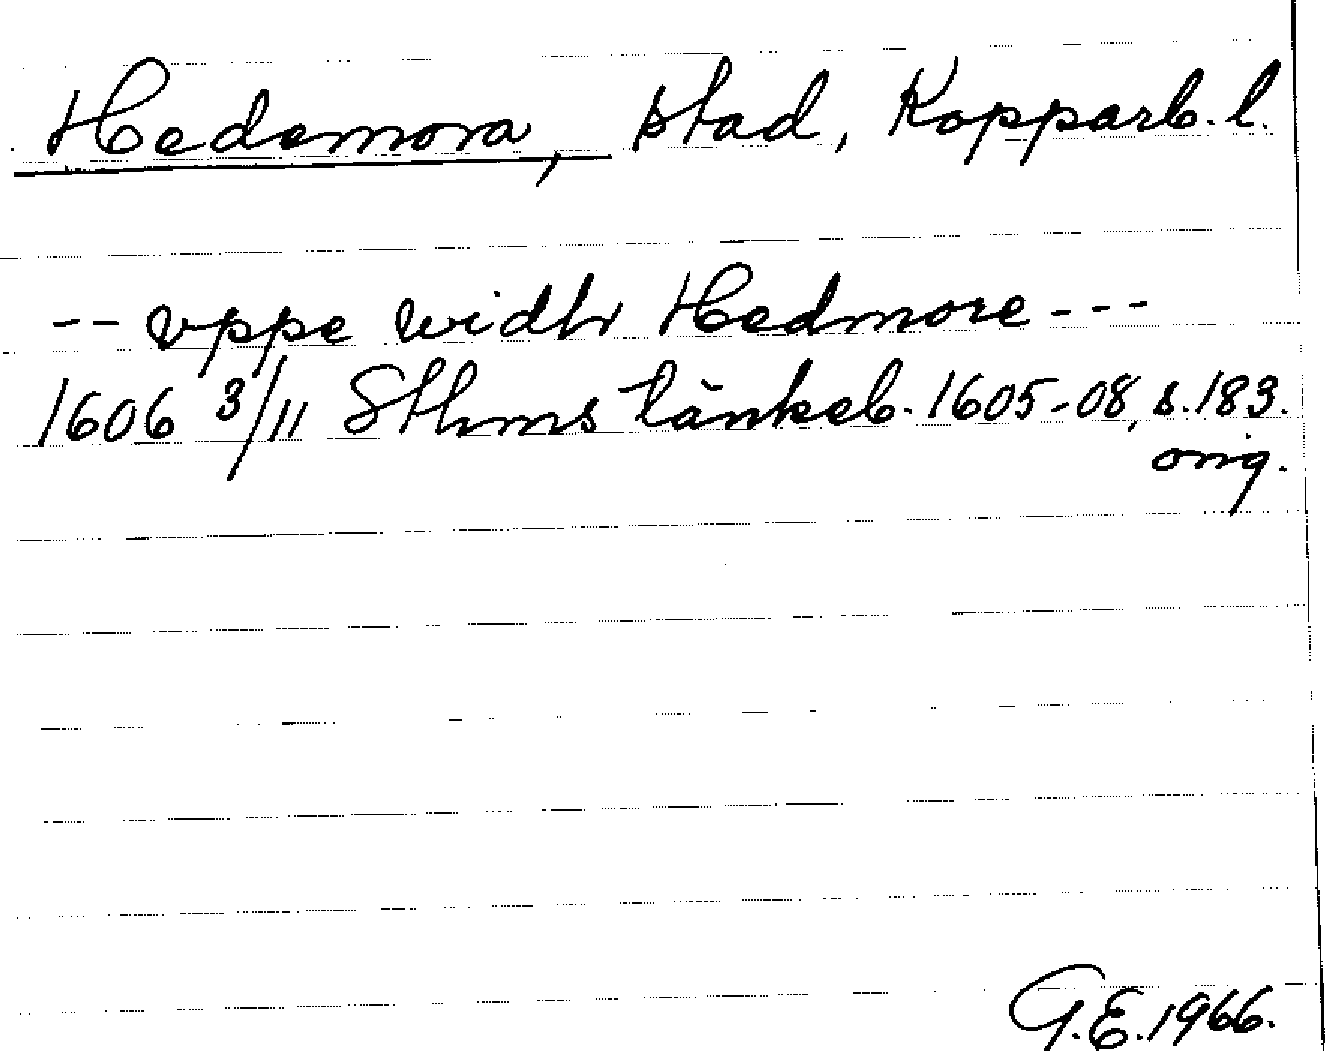 Hedemora, stad, Kopparb. l.
-- vppe widh Hedmore ---
1606 3/11 Sthms tänkeb. 1605-08, s. 183.
orig.
G.E. 1966.